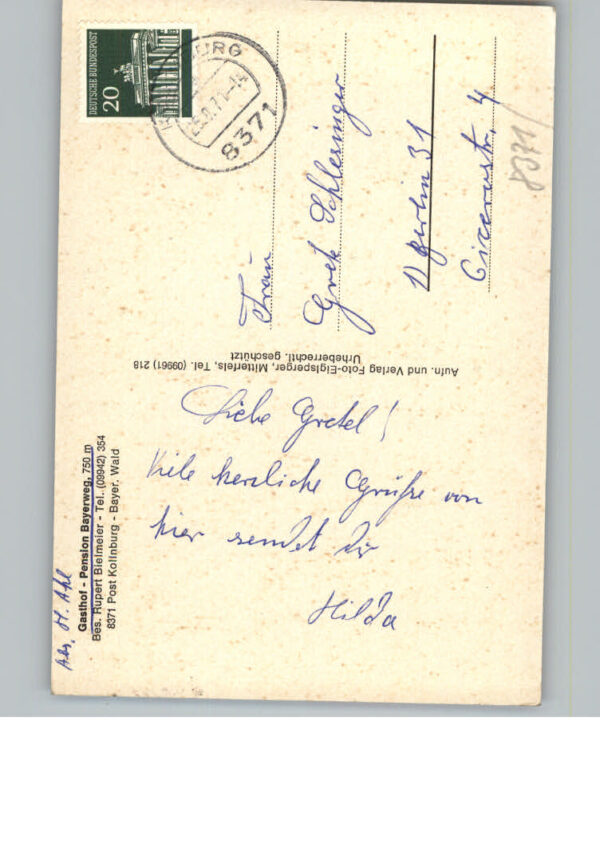 Abs. H. Ahl
Gasthof - Pension Bayerweg, 750 m
Bes. Rupert Bielmeier - Tel. (09942) 354
8371 Post Kollnburg - Bayer. Wald
Liebe Gretel!
Viele herzliche Grüße von
hier sendet dir
Hilda
Aufn. und Verlag Foto-Elglsperger, Mitterfels, Tel. (09961) 218
Urheberrechtl. geschützt
DEUTSCHE BUNDESPOST
20
8371
Frau
Gret. Schlesinger
1 Berlin 31
Cicerostr. 4
8371/